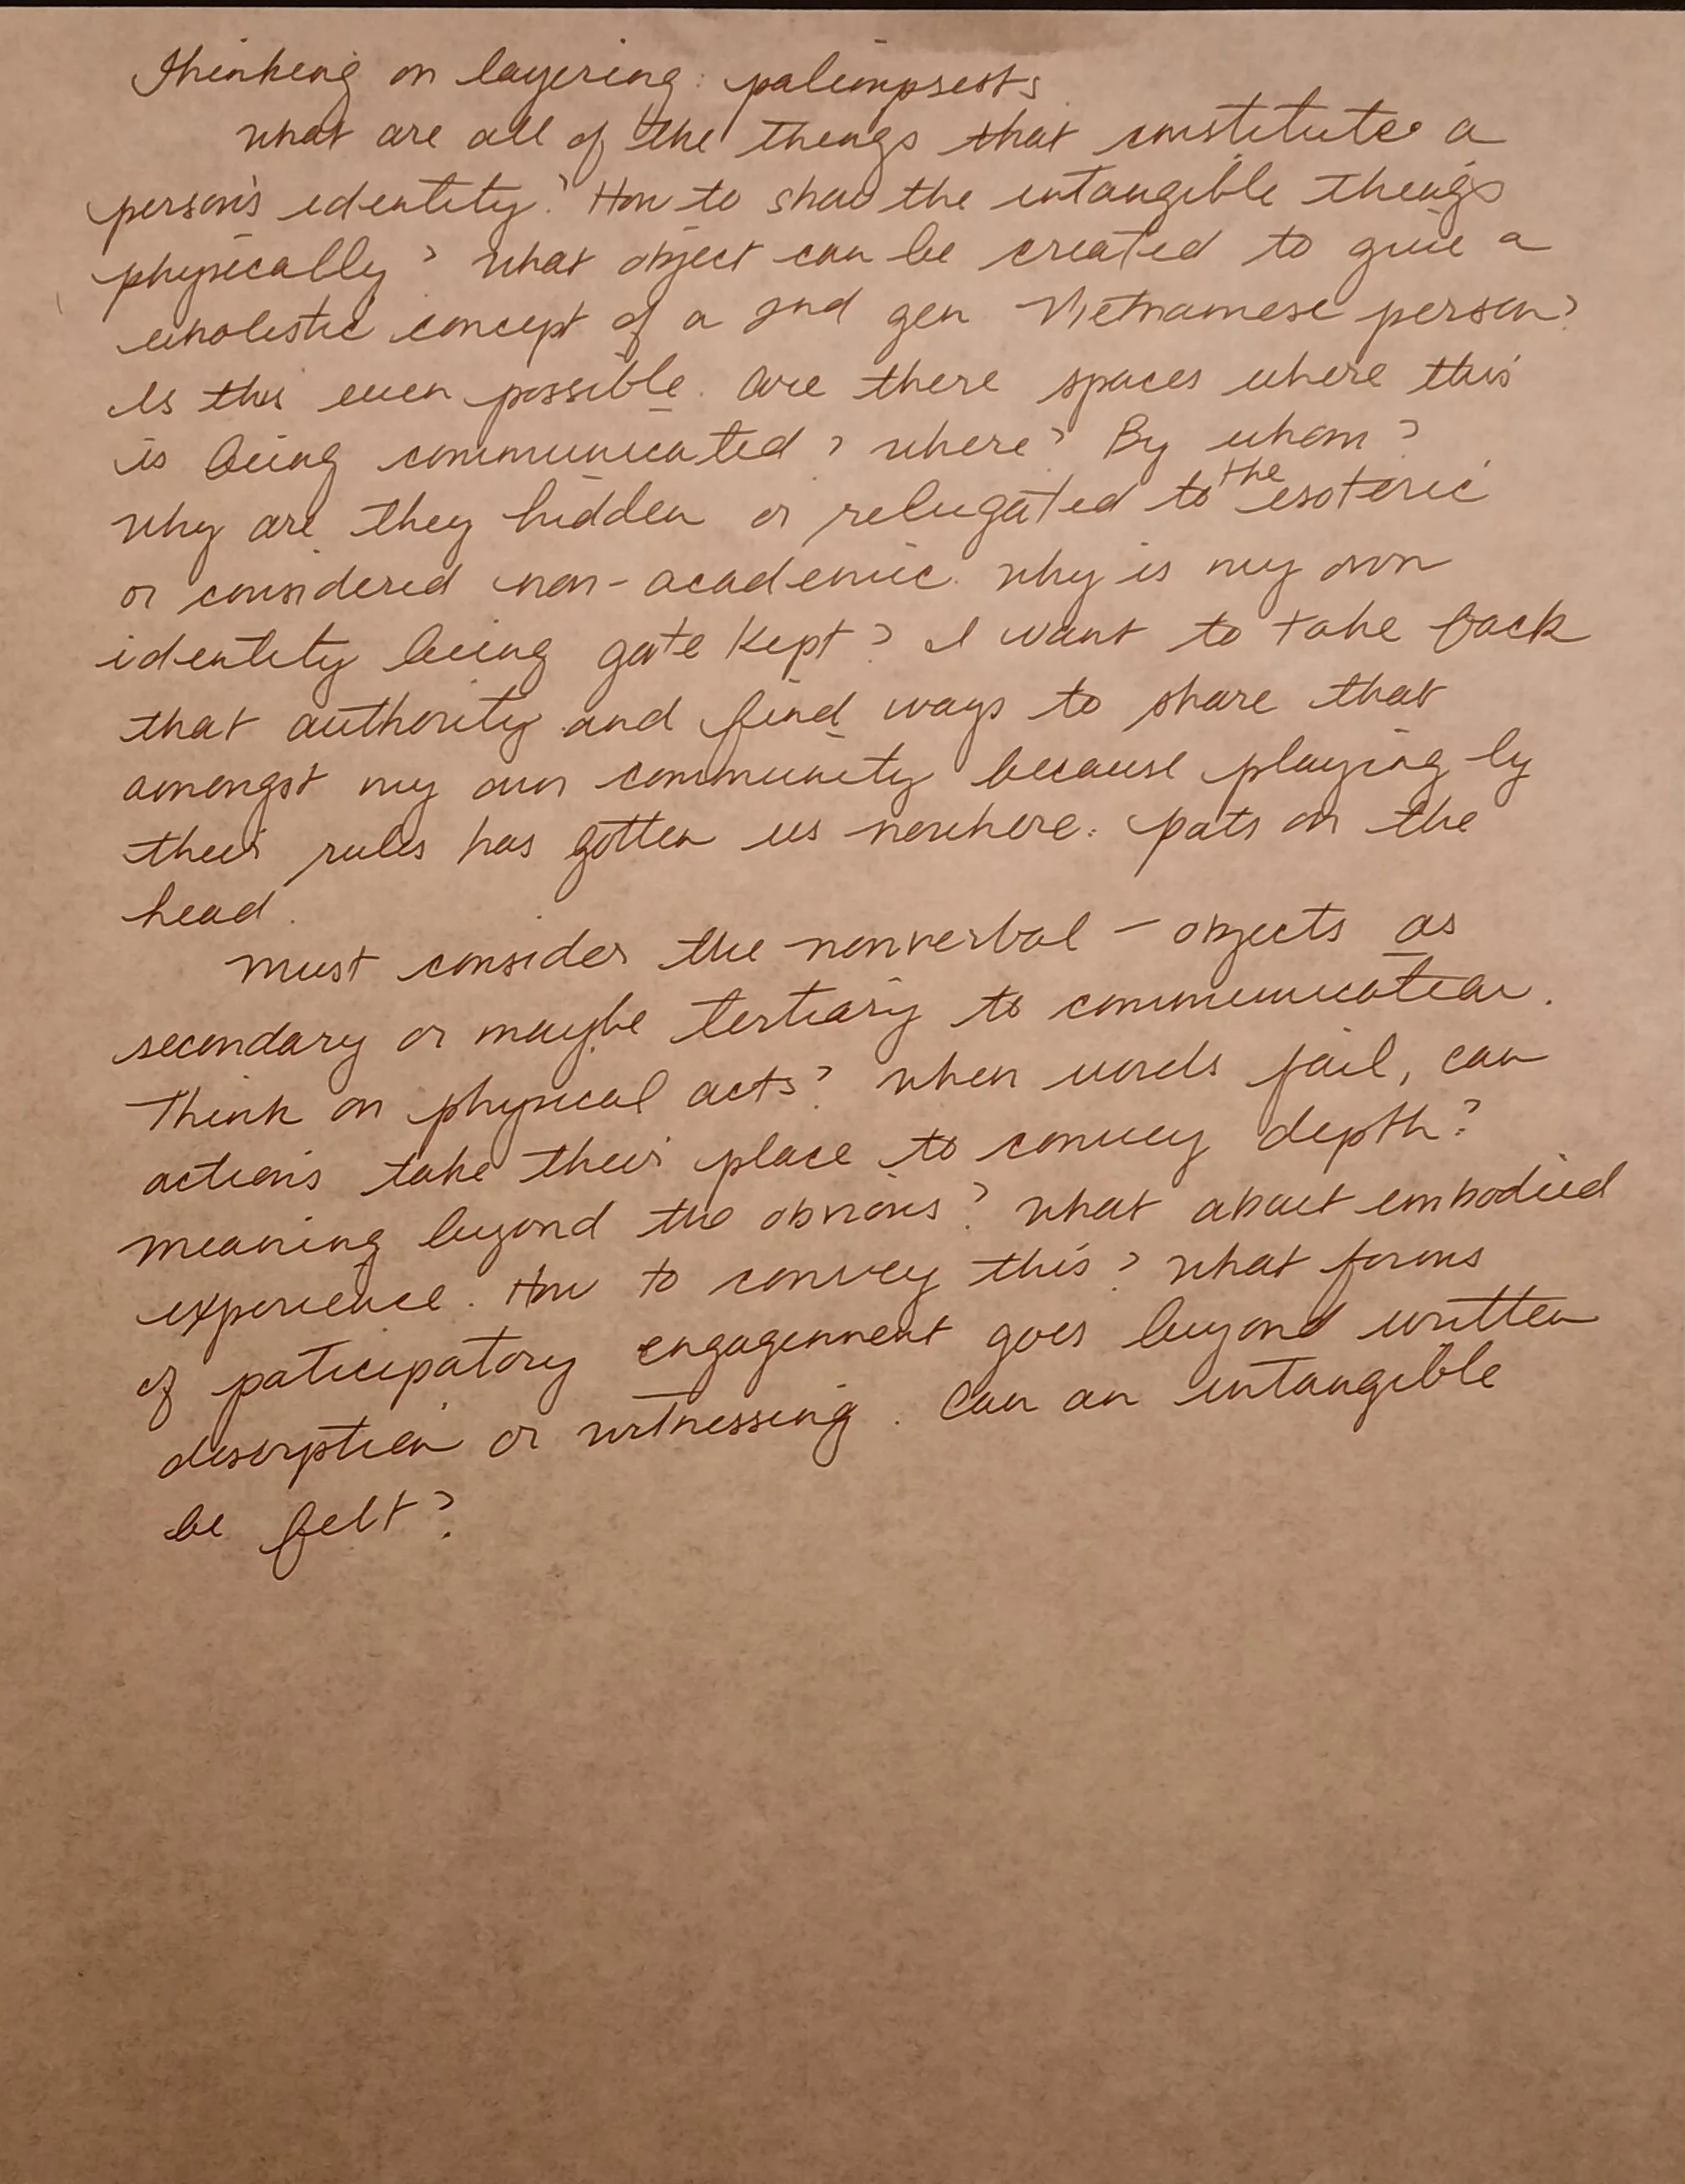 Thinking on layering: palimpsests
what are all of the things that constitutes a
person's identity? How to show the intangible things
physically? what object can be created to give a
wholistic concept of a 2nd gen Vietnamese person?
Is this even possible. Are there spaces where this
is being communicated? where? By whom?
why are they hidden or relugated to the esoteric
or considered non-academic. why is my own
identity being gate kept? I want to take back
that authority and find ways to share that
amongst my own community because playing by
their rules has gotten us nowhere. pats on the
head.
must consider the nonverbal - objects as
secondary or maybe tertiary to communication.
Think on physical acts? when words fail, can
actions take their place to convey depth?
meaning beyond the obvious? what about embodied
experience. How to convey this? what forms
of paticipatory engagenment goes beyond written
desorption or witnessing. Can an intangible
be felt?